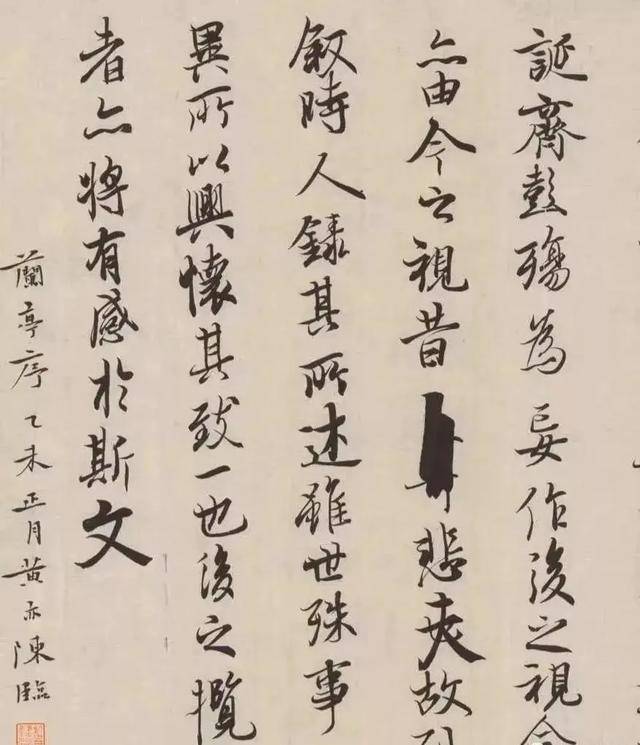 誕齊彭殤為妄作後之視今
亦由今之視昔悲夫故列
敘時人錄其所述雖世殊事
異所以興懷其致一也後之攬
者亦將有感於斯文
蘭亭序乙未正月黄亦陳臨